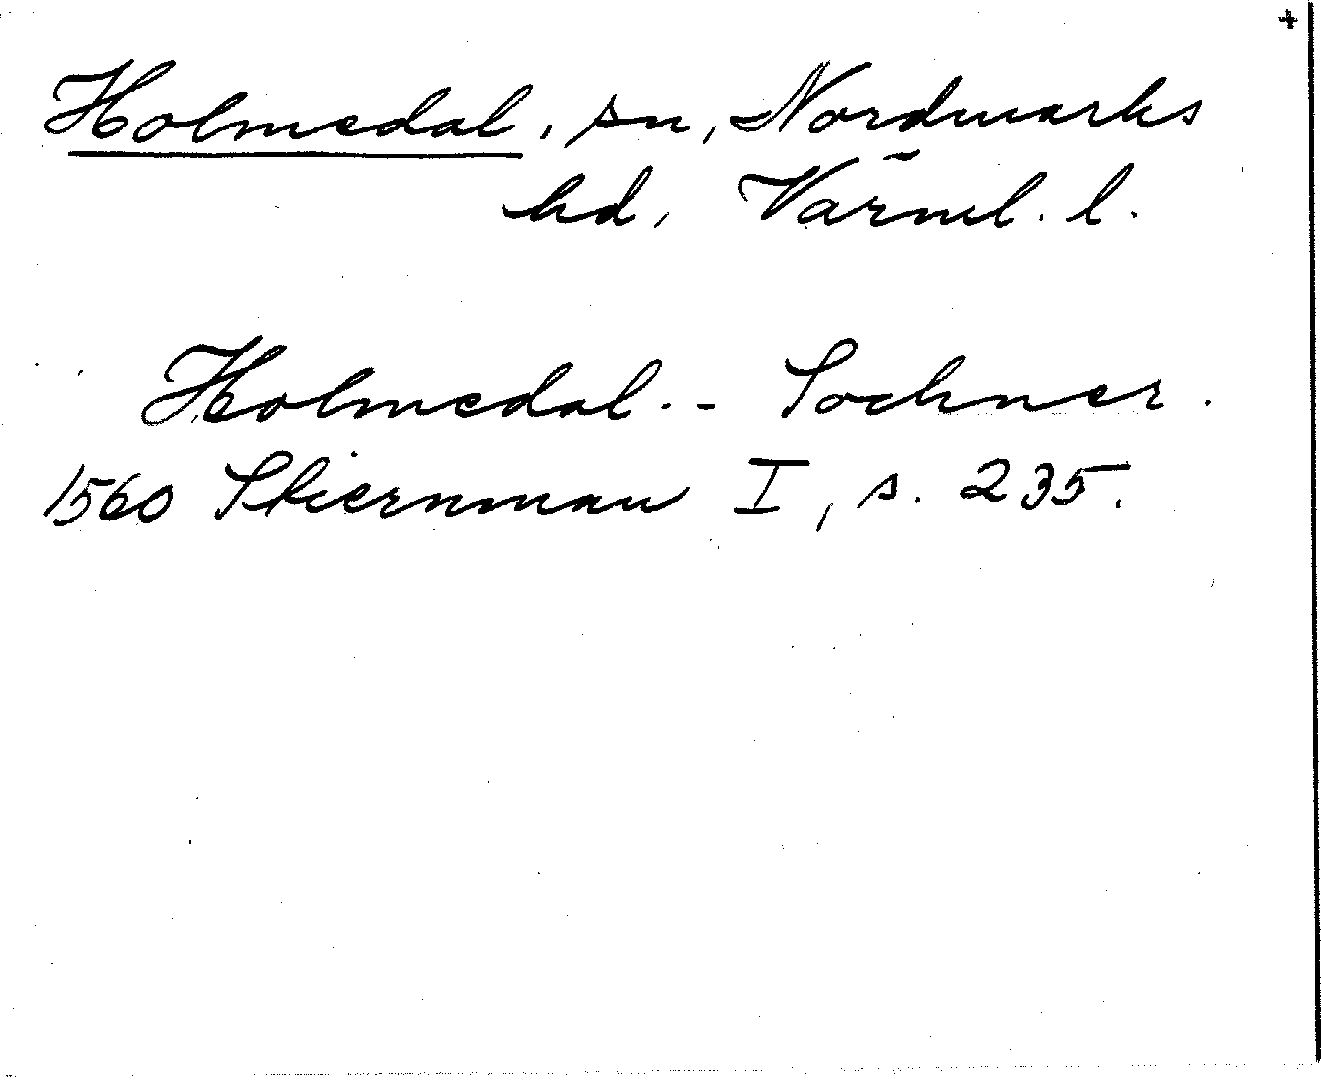 +
Holmedal, sn, Nordmarks
hd, Värml. l.
Holmedal.- Sochner.
1560 Stiernman I, s. 235.